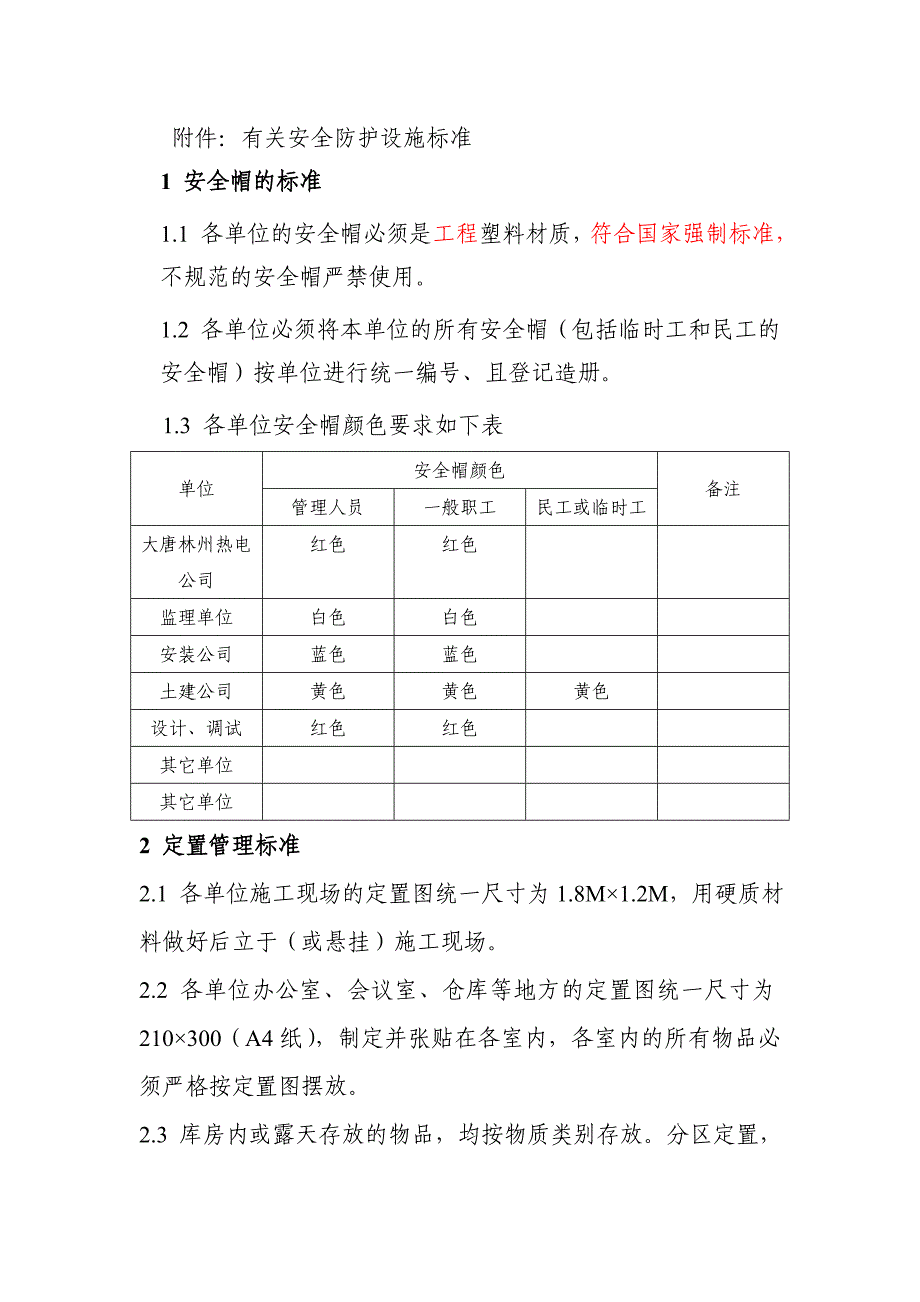 附件：有关安全防护设施标准
1 安全帽的标准
1.1 各单位的安全帽必须是工程塑料材质，符合国家强制标准，
不规范的安全帽严禁使用。
1.2 各单位必须将本单位的所有安全帽（包括临时工和民工的
安全帽）按单位进行统一编号、且登记造册。
1.3 各单位安全帽颜色要求如下表
单位 安全帽颜色 备注
管理人员 一般职工 民工或临时工
大唐林州热电 红色 红色
公司
监理单位 白色 白色
安装公司 蓝色 蓝色
土建公司 黄色 黄色 黄色
设计、调试 红色 红色
其它单位
其它单位
2 定置管理标准
2.1 各单位施工现场的定置图统一尺寸为 1.8M×1.2M，用硬质材
料做好后立于（或悬挂）施工现场。
2.2 各单位办公室、会议室、仓库等地方的定置图统一尺寸为
210×300（A4 纸），制定并张贴在各室内，各室内的所有物品必
须严格按定置图摆放。
2.3 库房内或露天存放的物品，均按物质类别存放。分区定置，